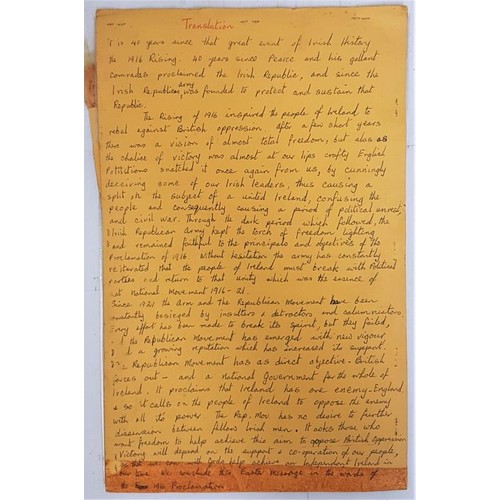 Translation
it is 40 years since that great event of Irish History
the 1916 Rising. 40 years since Pearce and his gallant
comrades proclaimed the Irish Republic, and since the
Irish Republican army was founded to protect and sustain that
Republic.
The Rising of 1916 inspired the people of Ireland to
rebel against British oppression. After a few short years
there was a vision of almost total freedom, but alas as
the chalice of victory was almost at our lips crafty English
Politicians snatched it once again from us, by cunningly
deceiving some of our Irish leaders, thus causing a
split on the subject of a united Ireland, confusing the
people and consequently causing a period of political unrest,
and civil war. Through the dark period which followed, the
Irish Republican army kept the torch of freedom lighting
and remained faithful to the principals and objectives of the
Proclamation of 1916. Without hesitation the army has constantly
reiterated that the people of Ireland must break with Political
parties and return to that unity which was the essence of
that National Movement 1916-21.
Since 1921 the Army and the Republican Movement have been
constantly besieged by insulters & detractors and calumniators.
Every effort has been made to break its spirit, but they failed,
the Republican Movement has emerged with new vigour
a growing reputation which has increased its support.
The Republican Movement has as direct objective - British
forces out - and a National Government for the whole of
Ireland. It proclaims that Ireland has one enemy - England
& so it calls on the people of Ireland to oppose the enemy
with all its power. The Rep. Mov. has no desire to further
dissension between fellow Irish men. It asks those who
want freedom to help achieve this aim to oppose British oppression
Victory will depend on the support & co-operation of our people,
we can with Gods help achieve an Independent Ireland in
our time. We conclude this Easter message in the words of
the Proclamation